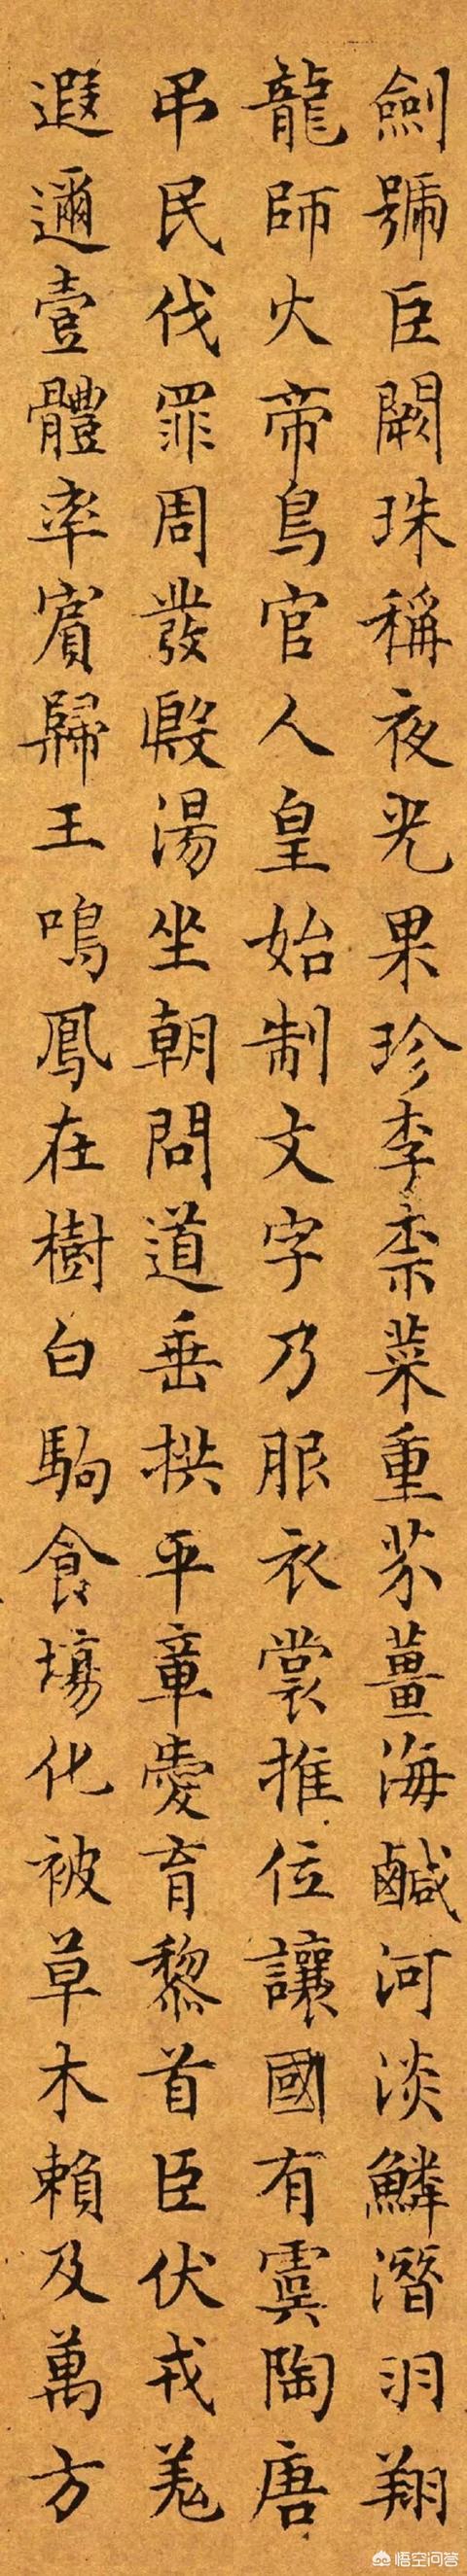 劍號巨闕珠稱夜光果珍李柰菜重芥薑海鹹河淡鱗潛羽翔
龍師火帝鳥官人皇始制文字乃服衣裳推位讓國有虞陶唐
弔民伐罪周發殷湯坐朝問道垂拱平章愛育黎首臣伏戎羌
遐邇壹體率賓歸王鳴鳳在樹白駒食場化被草木賴及萬方
悟空问答